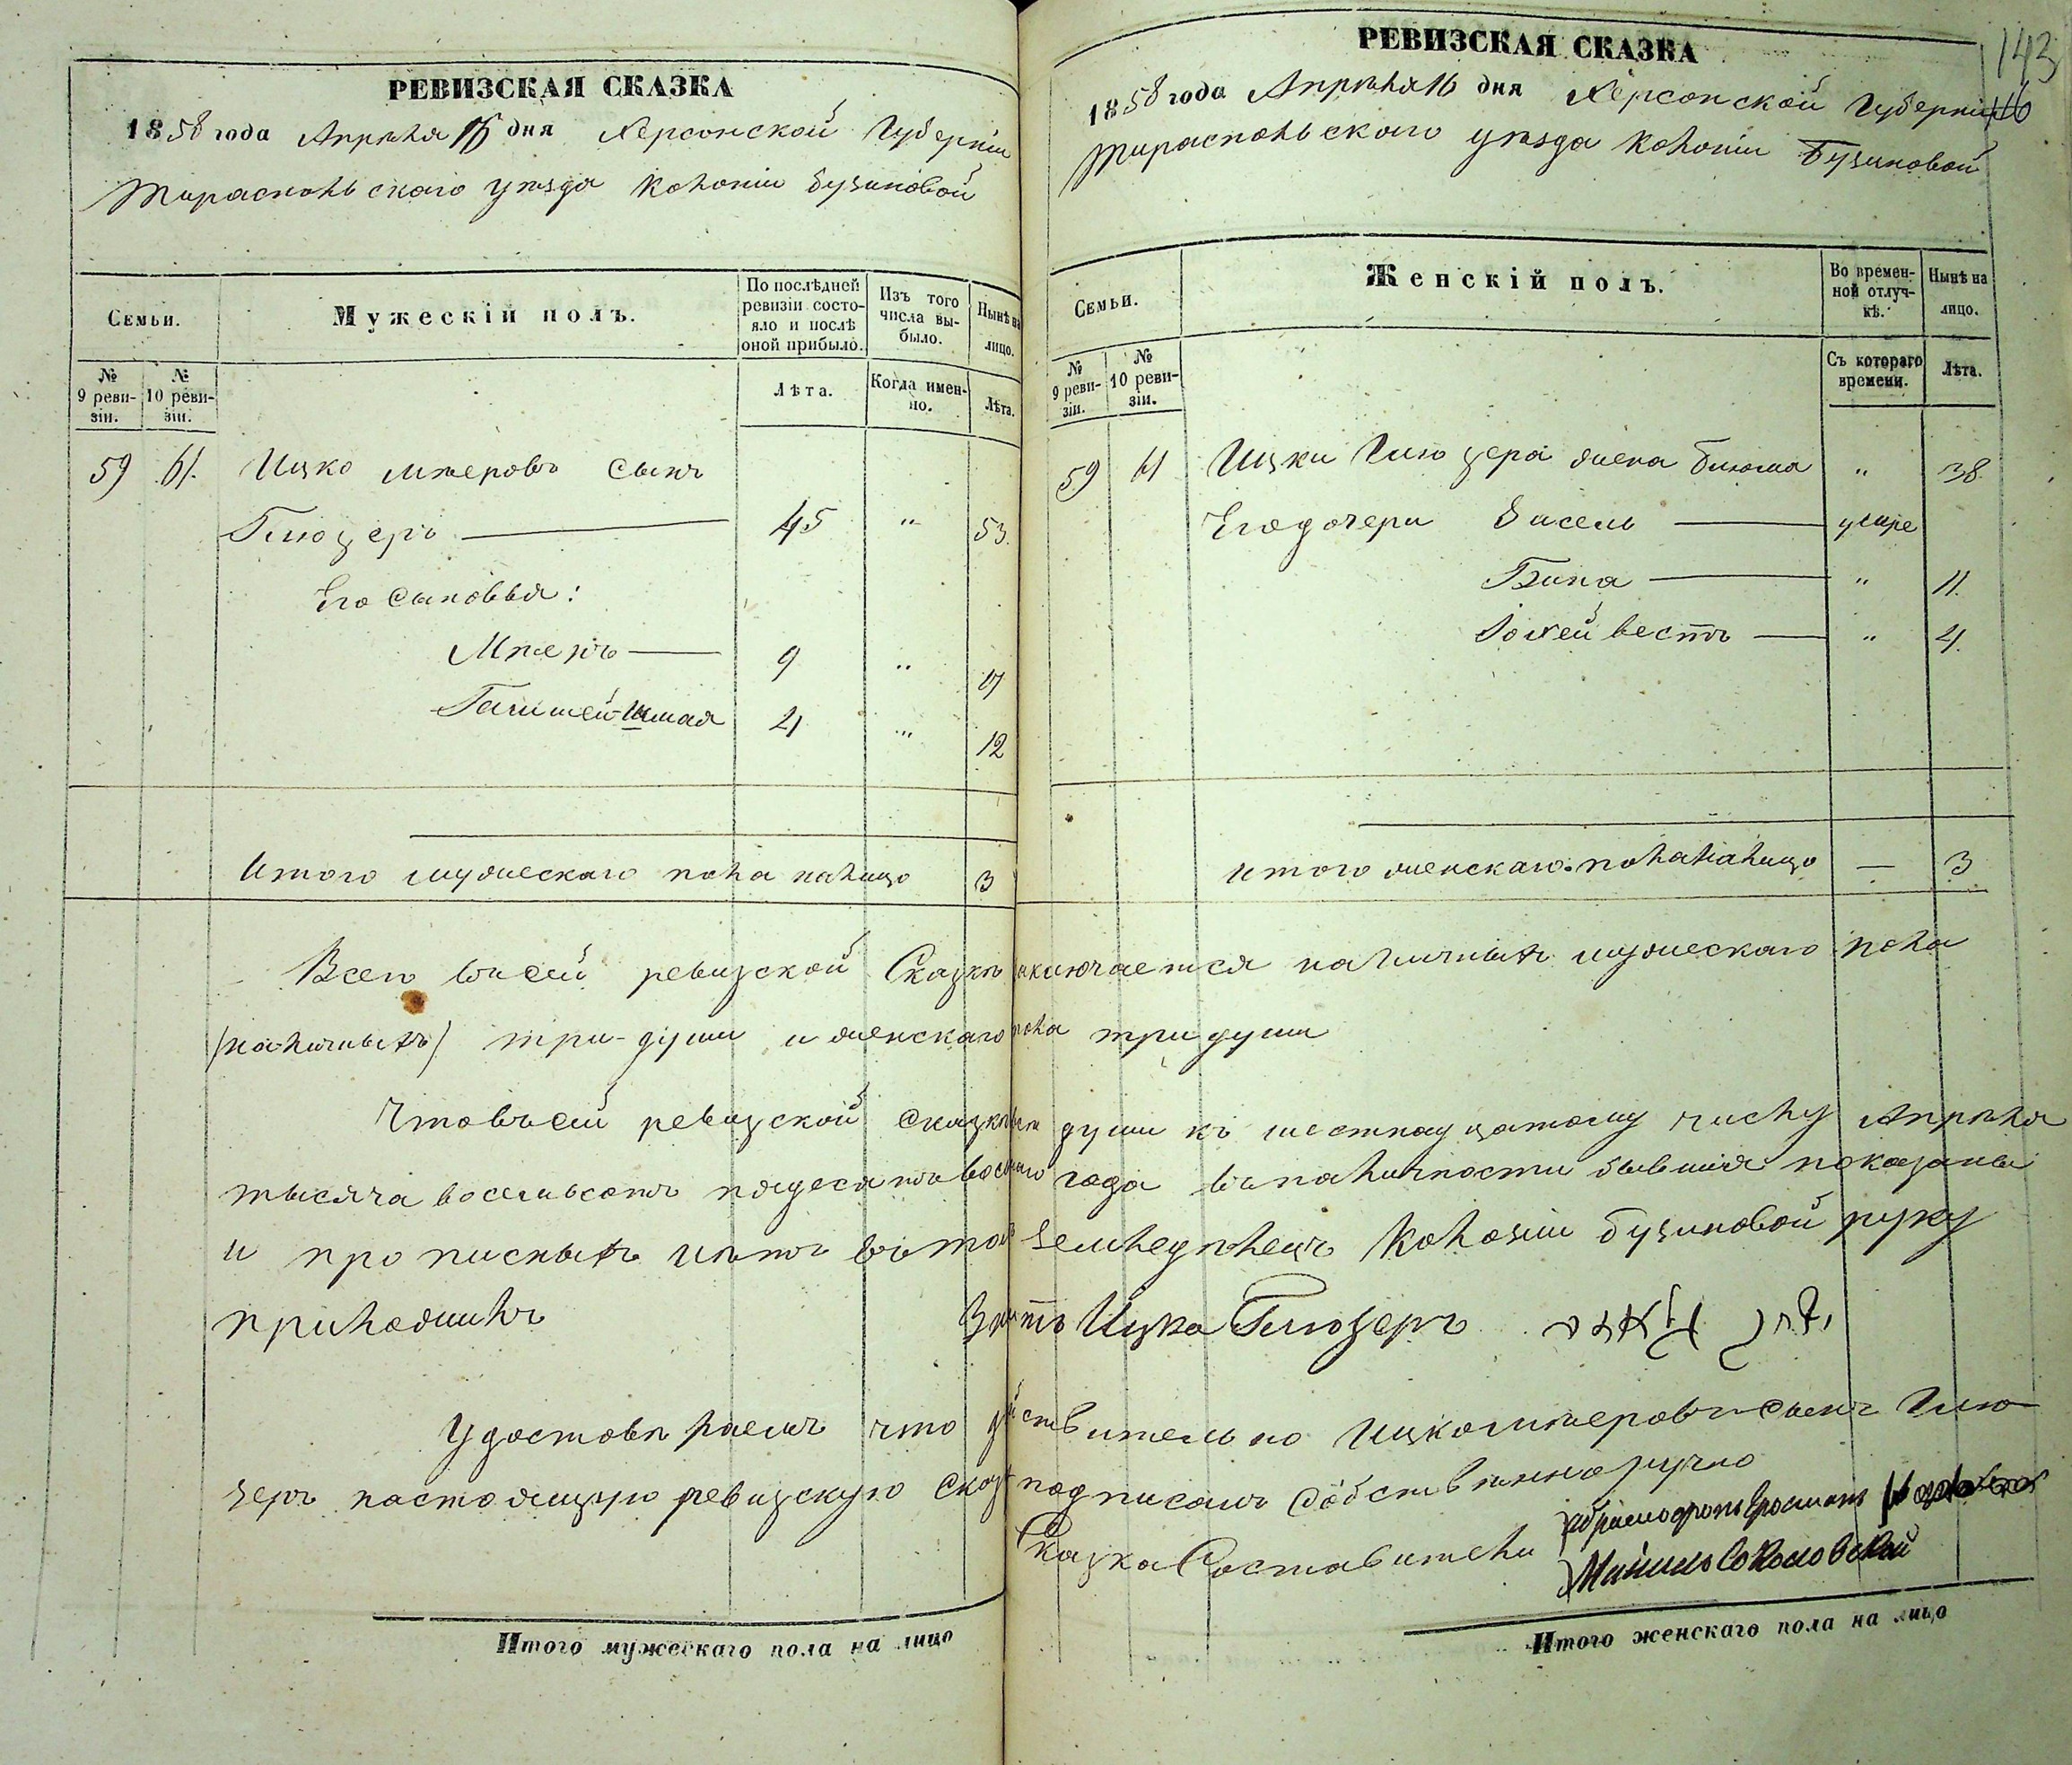 РЕВИЗСКАЯ СКАЗКА
1858 года Апрѣля 16 дня Херсонской Губерніи
Тираспольскаго уѣзда колоніи бузиновой
Семьи.
Мужескій полъ.
По послѣдней ревизіи состояло и послѣ оной прибыло.
Изъ того числа выбыло.
Нынѣ на лицо.
№ 9 ревизіи.
№ 10 ревизіи.
Лѣта.
Когда именно.
Лѣта.
59 61. Ицко Мееровъ сынъ
Глюзеръ 45 " 53.
Его сыновья:
Мееръ 9 " 17
4 " 12
Итого мужескаго пола налицо 3
РЕВИЗСКАЯ СКАЗКА
143
1858 года Апрѣля 16 дня Херсонской Губерніи
Тираспольскаго уѣзда колоніи Бузиновой
Семьи.
Женскій полъ.
Во временной отлучкѣ.
Нынѣ на лицо.
№ 9 ревизіи.
№ 10 ревизіи.
Съ котораго времени.
Лѣта.
59 61 Ицки Глюзера жена Блюма " 38.
Его дочери Басель умре
" 11.
" 4.
Итого женскаго пола налицо — 3
Всего въ сей ревизской Сказкѣ заключается наличныхъ мужескаго пола
(наличныхъ) три души и женскаго пола три души
Что въ сей ревизской сказкѣ всѣ души къ шестнадцатому числу Апрѣля
тысяча восемьсотъ пядесятъ восьмаго года въ наличности бывшія показаны
и прописныхъ нѣтъ въ томъ Земледѣлецъ Колоніи бузиновой руку
приложилъ Ицка Глюзеръ
Удостовѣряемъ что дѣйствительно Ицко Мееровъ сынъ Глю
зеръ настоящую ревизскую сказку подписалъ собственноручно
Сказка Составители
Соколовскій
Итого мужескаго пола на лицо
Итого женскаго пола на лицо